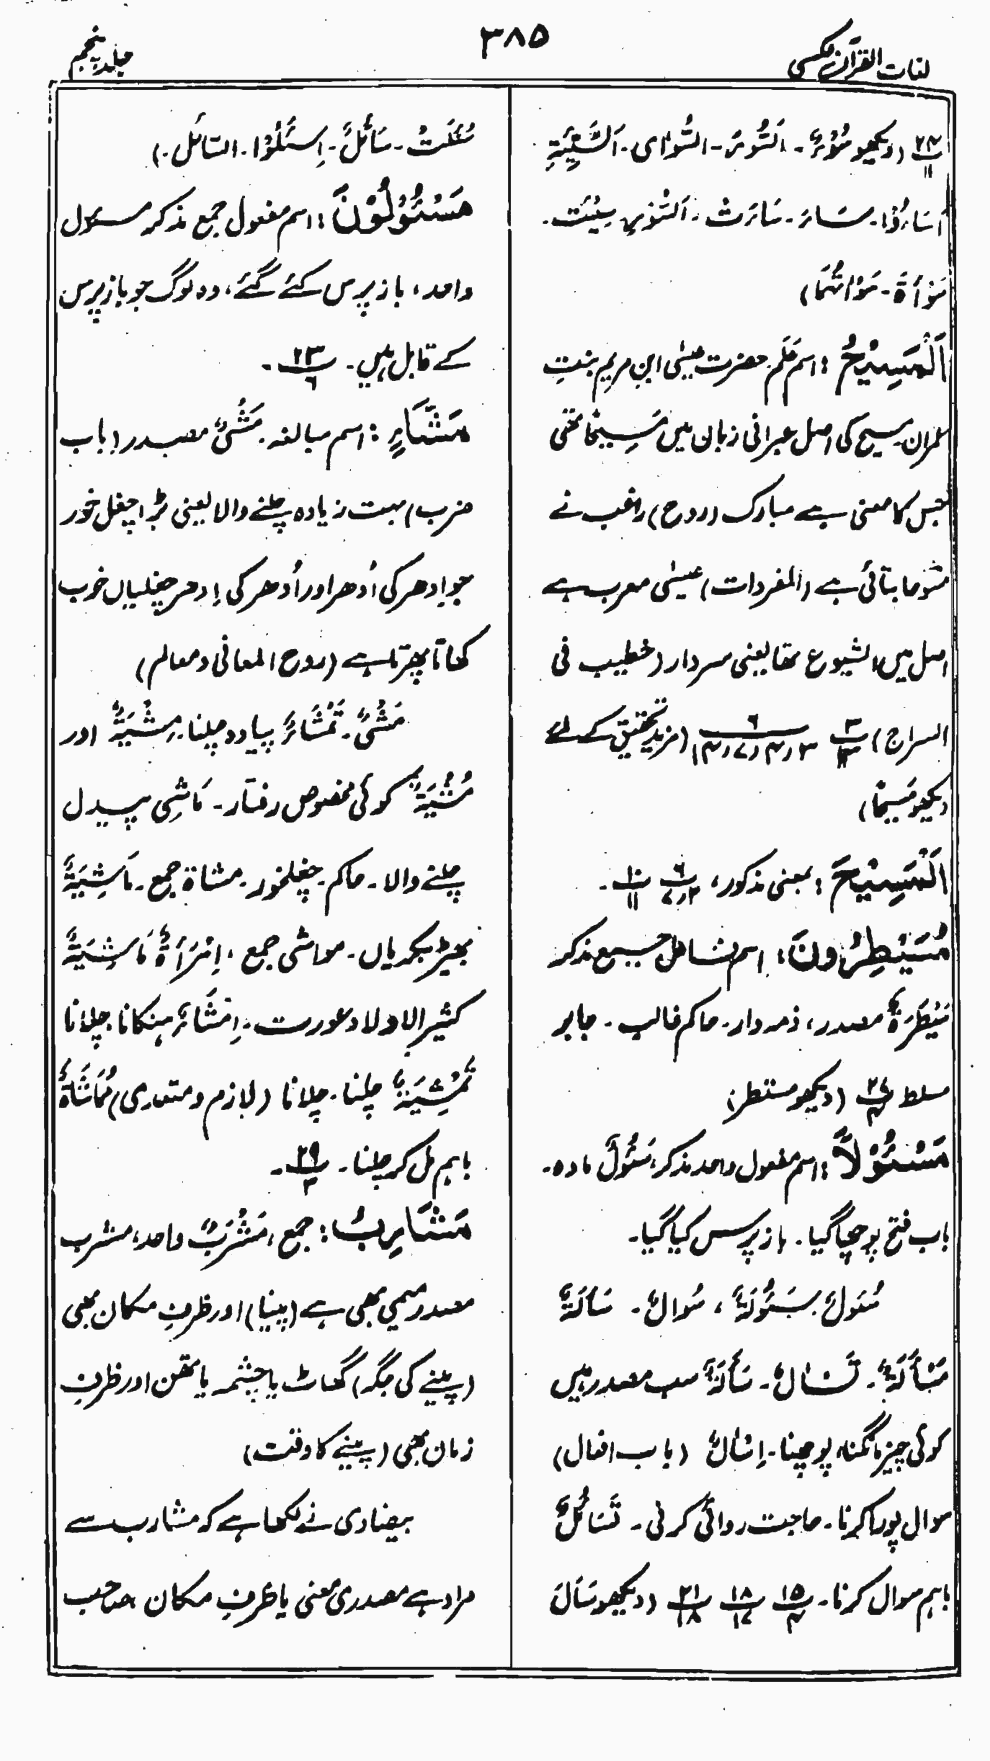 لغات القرآن عکسی
۳۸۵
جلد پنجم
۲۴/۱۱ (دیکھو سُوْءٌ۔ اَلسُّوْءَ۔ السُّوْاٰی۔ اَلسَّیِّئَۃِ
اَسَاءُوْا۔ سَاءَ۔ سَاءَتْ۔ اَلسَّوْءِ۔ سِیْئَت۔
سَوْأَۃَ۔ سَوْاٰتُہُمَا)
اَلْمَسِیْحُ : اسم عَلَم حضرت عیسٰی ابن مریم بنتِ
عمران۔ مسیح کی اصل عبرانی زبان میں مَسِیْحًا تھی
جس کا معنی ہے مبارک (روح) راغب نے
مشوحا بتائی ہے (المفردات) عیسٰی معرب ہے
اصل میں الشیوع تھا یعنی سردار (خطیب فی
السراج) ۳/۱۳ ۶/۳،۴،۷،۱۴ (مزید تحقیق کے لئے
دیکھو مَسِیْحًا)
اَلْمَسِیْحَ : بمعنی مذکور، ۶/۲،۷ ۱۰/۱۱۔
مُسَیْطِرُونَ : اسم فاعل جمع مذکر
سَیْطَرَۃٌ مصدر، ذمہ دار۔ حاکم غالب۔ جابر
مسلط ۲۷/۴ (دیکھو مستطر)
مَسْئُوْلًا : اسم مفعول واحد مذکر، سَئُوْلٌ مادہ۔
باب فتح پوچھا گیا۔ باز پرس کیا گیا۔
سُئَولٌ، سَئُوْلَۃٌ، سُوالٌ۔ سَأَلَۃٌ
مَسْأَلَۃٌ۔ تَسْاٰلٌ۔ سَأَلَۃٌ سب مصدر ہیں
کوئی چیز مانگنا، پوچھنا۔ اِسْأَلٌ (باب افعال)
سوال پورا کرنا۔ حاجت روائی کرنی۔ تَسَائُلٌ
باہم سوال کرنا۔ ۱۵/۴ ۱۸/۱۷ ۲۱/۱۸ (دیکھو سَأَلَ
سُئِلَتْ۔ سَائِلٌ۔ اِسْئَلُوْا۔ السّائل۔)
مَسْئُوْلُوْنَ : اسم مفعول جمع مذکر مسئول
واحد، باز پرس کئے گئے، وہ لوگ جو باز پرس
کے قابل ہیں۔ ۲۳/۶۔
مَشَّاءٍ : اسم مبالغہ۔ مَشْیٌ مصدر (باب
ضرب) بہت زیادہ چلنے والا یعنی بڑا چغل خور
جو اِدھر کی اُدھر اور اُدھر کی اِدھر چغلیاں خوب
کھاتا پھرتا ہے (روح المعانی و معالم)
مَشْیٌ۔ تَمْشَاءٌ پیادہ چلنا۔ مِشْیَۃٌ اور
مُشْیَۃٌ کوئی مخصوص رفتار۔ مَاشِی پیدل
چلنے والا۔ حاکم۔ چغلخور۔ مشاۃ جمع۔ مَاشِیَۃٌ
بھیڑ بکریاں۔ مواشی جمع، اِمْرَأَۃٌ مَاشِیَۃٌ
کثیر الاولاد عورت۔ اِمْشَاءٌ ہنکانا، چلانا
تَمْشِیَۃٌ چلنا۔ چلانا (لازم و متعدی) مُمَاشَاۃٌ
باہم مل کر چلنا۔ ۲۹/۳۔
مَشَارِبُ : جمع، مَشْرَبٌ واحد، مشرب
مصدر میمی بھی ہے (پینا) اور ظرفِ مکان بھی
(پینے کی جگہ) گھاٹ یا چشمہ یا تھن اور ظرفِ
زمان بھی (پینے کا وقت)
بیضاوی نے لکھا ہے کہ مشارب سے
مراد ہے مصدری معنی یا ظرفِ مکان، صاحب